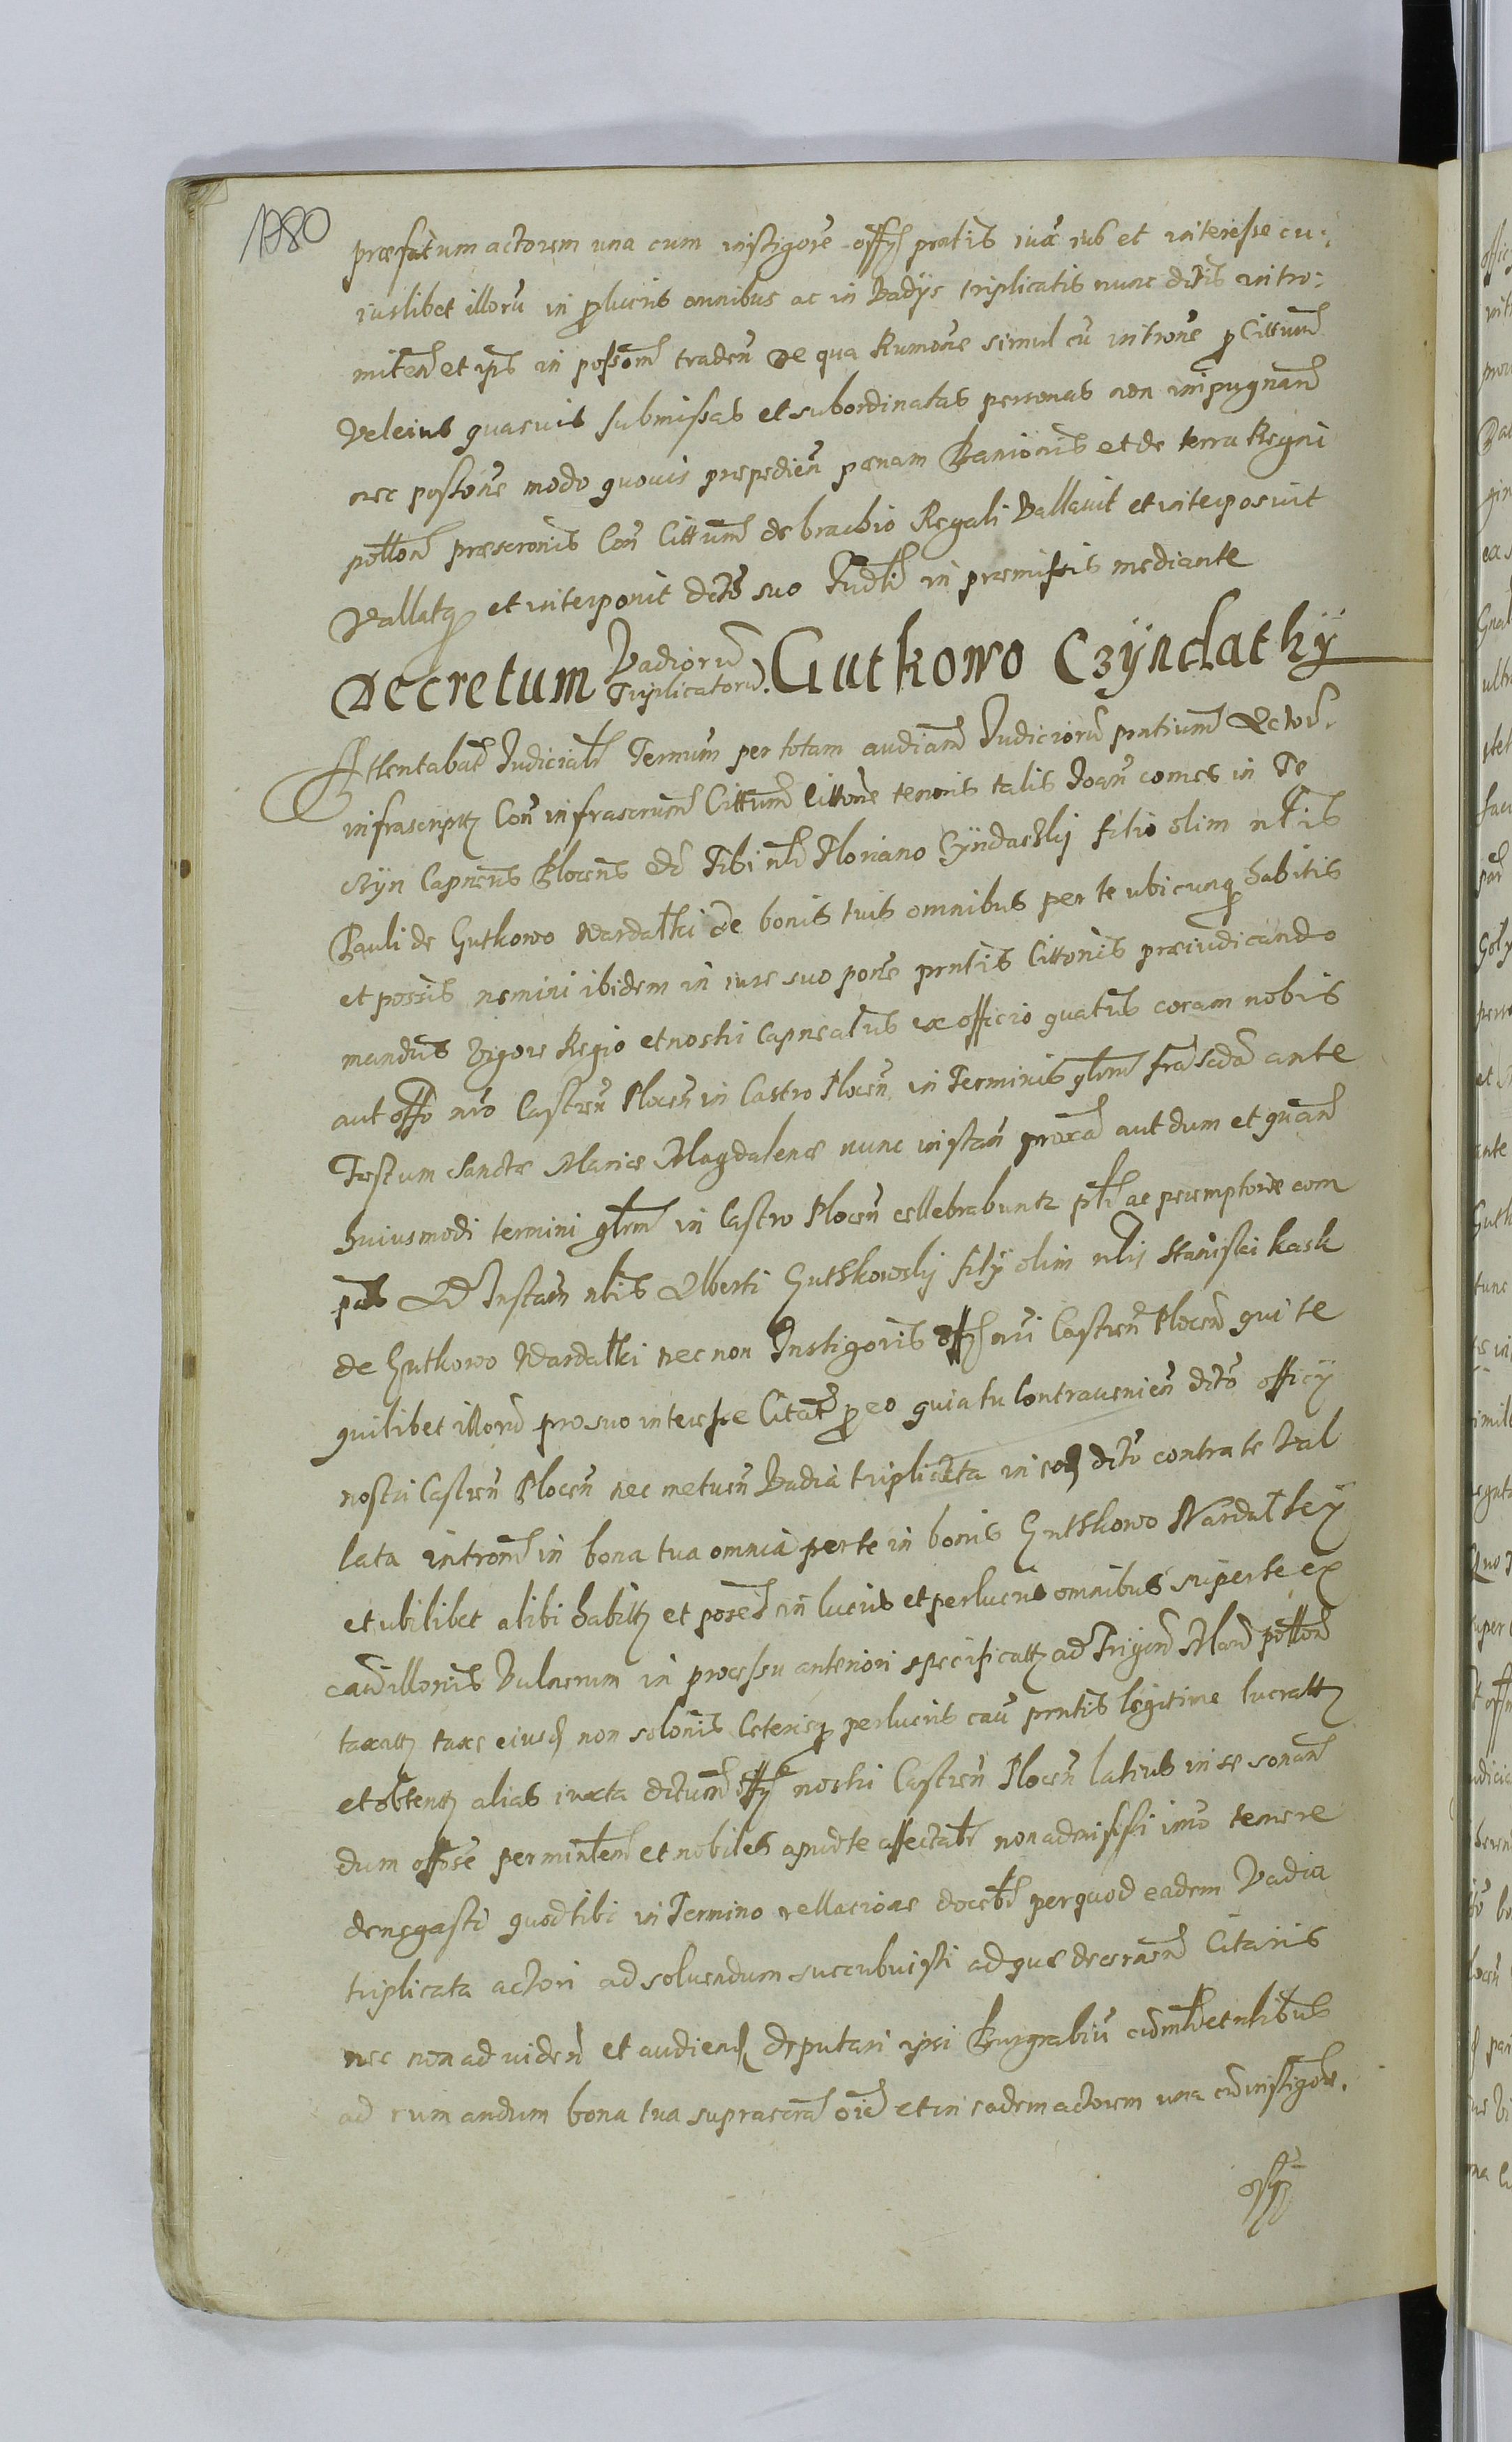 1080
præfatum actorem una cum instigore offÿ pntis iux ius et interesse cu:
iuslibet illorũ in p lucris omnibus ac in Vadÿs triplicatis nunc dctis intro:
mitteñ et ips in possoñ tradeñ De qua Rumoñe simul cũ introñe p Cittum
Veleius quasvis submissas et subordinatas personas non impugnañ
nec possoñe modo quovis præpedieñ pænam Banionis et de terra Regni
pottoñ præscronis Coñ Cittum de brachio Regali Vallavit et interposuit
Vallatq et interponit dcto suo Judli in præmissis mediante
Decretum Vadiorũ Triplicatorũ. Gutkowo Czÿndathÿ
Attentabat Judicialr Termum per totam audiam Judiciorũ pntium Actor
infrascriptz Coñ infrascrum Cittum littoñe tenoris talis Joañ comes in Te
czÿn Capneus Plocens etc Tibi nli Floriano Czÿndaczkÿ filio olim nlis
Pauli de Gutkowo Wardałki de bonis tuis omnibus per te ubicunq habitis
et possis nemini ibidem in iure suo porñe pntis Cittonis præiudicando
mandus Vigore Regio et nostri Capneatus ex officio quatus coram nobis
aut offo nro Castreñ Ploceñ in Castro Ploceñ in Terminis qlrm fra scda ante
Festum Sanctæ Mariæ Magdalenæ nunc instañ proxa aut dum et quañ
huiusmodi termini qlrm in Castro Ploceñ cellebrabuntr plr ac peremptorie com
pas Ad Instañ nlis Alberti Gutkowskÿ filÿ olim nlis Stanislai kask
de Gutkowo Wardałki nec non Instigoris offÿ nri Castreñ Ploceñ qui te
quilibet illorũ pro suo interesse Citat p eo quia tu Contraveniẽn dcto officÿ
nostri Castreñ Ploceñ nec metueñ Vadia triplicata in eod dcto contra te Val
lata introñ in bona tua omnia per te in bonis Gutkowo Wardałkÿ
et ubilibet alibi habitz et possẽ in lucris et perlucris omnibus super te ex
Vulnerum in processu anteriori specificattz ad Triginta Mar pottoñ
taxattz taxæ eiusd non solonis Ceterisq perlucris caũ pntis legitime lucrattz
et obtentz alias iuxta dctum offÿ nostri Castreñ Ploceñ latius in se sonañ
dum offose permitteñ et nobiles apud te affectatr non admisisti imo temere
denegasti quod tibi in Termino rellacionæ docebr per quod eadem Vadia
triplicata actori ad solvendum succubuisti ad quæ decerneñ Citaris
nec non ad videñ et audiend deputari ipsi Burgrabiũ cum mlr et nlibus
ad rumandum bona tua suprascra oia et in eadem actorem una cũ instigore.
offÿ